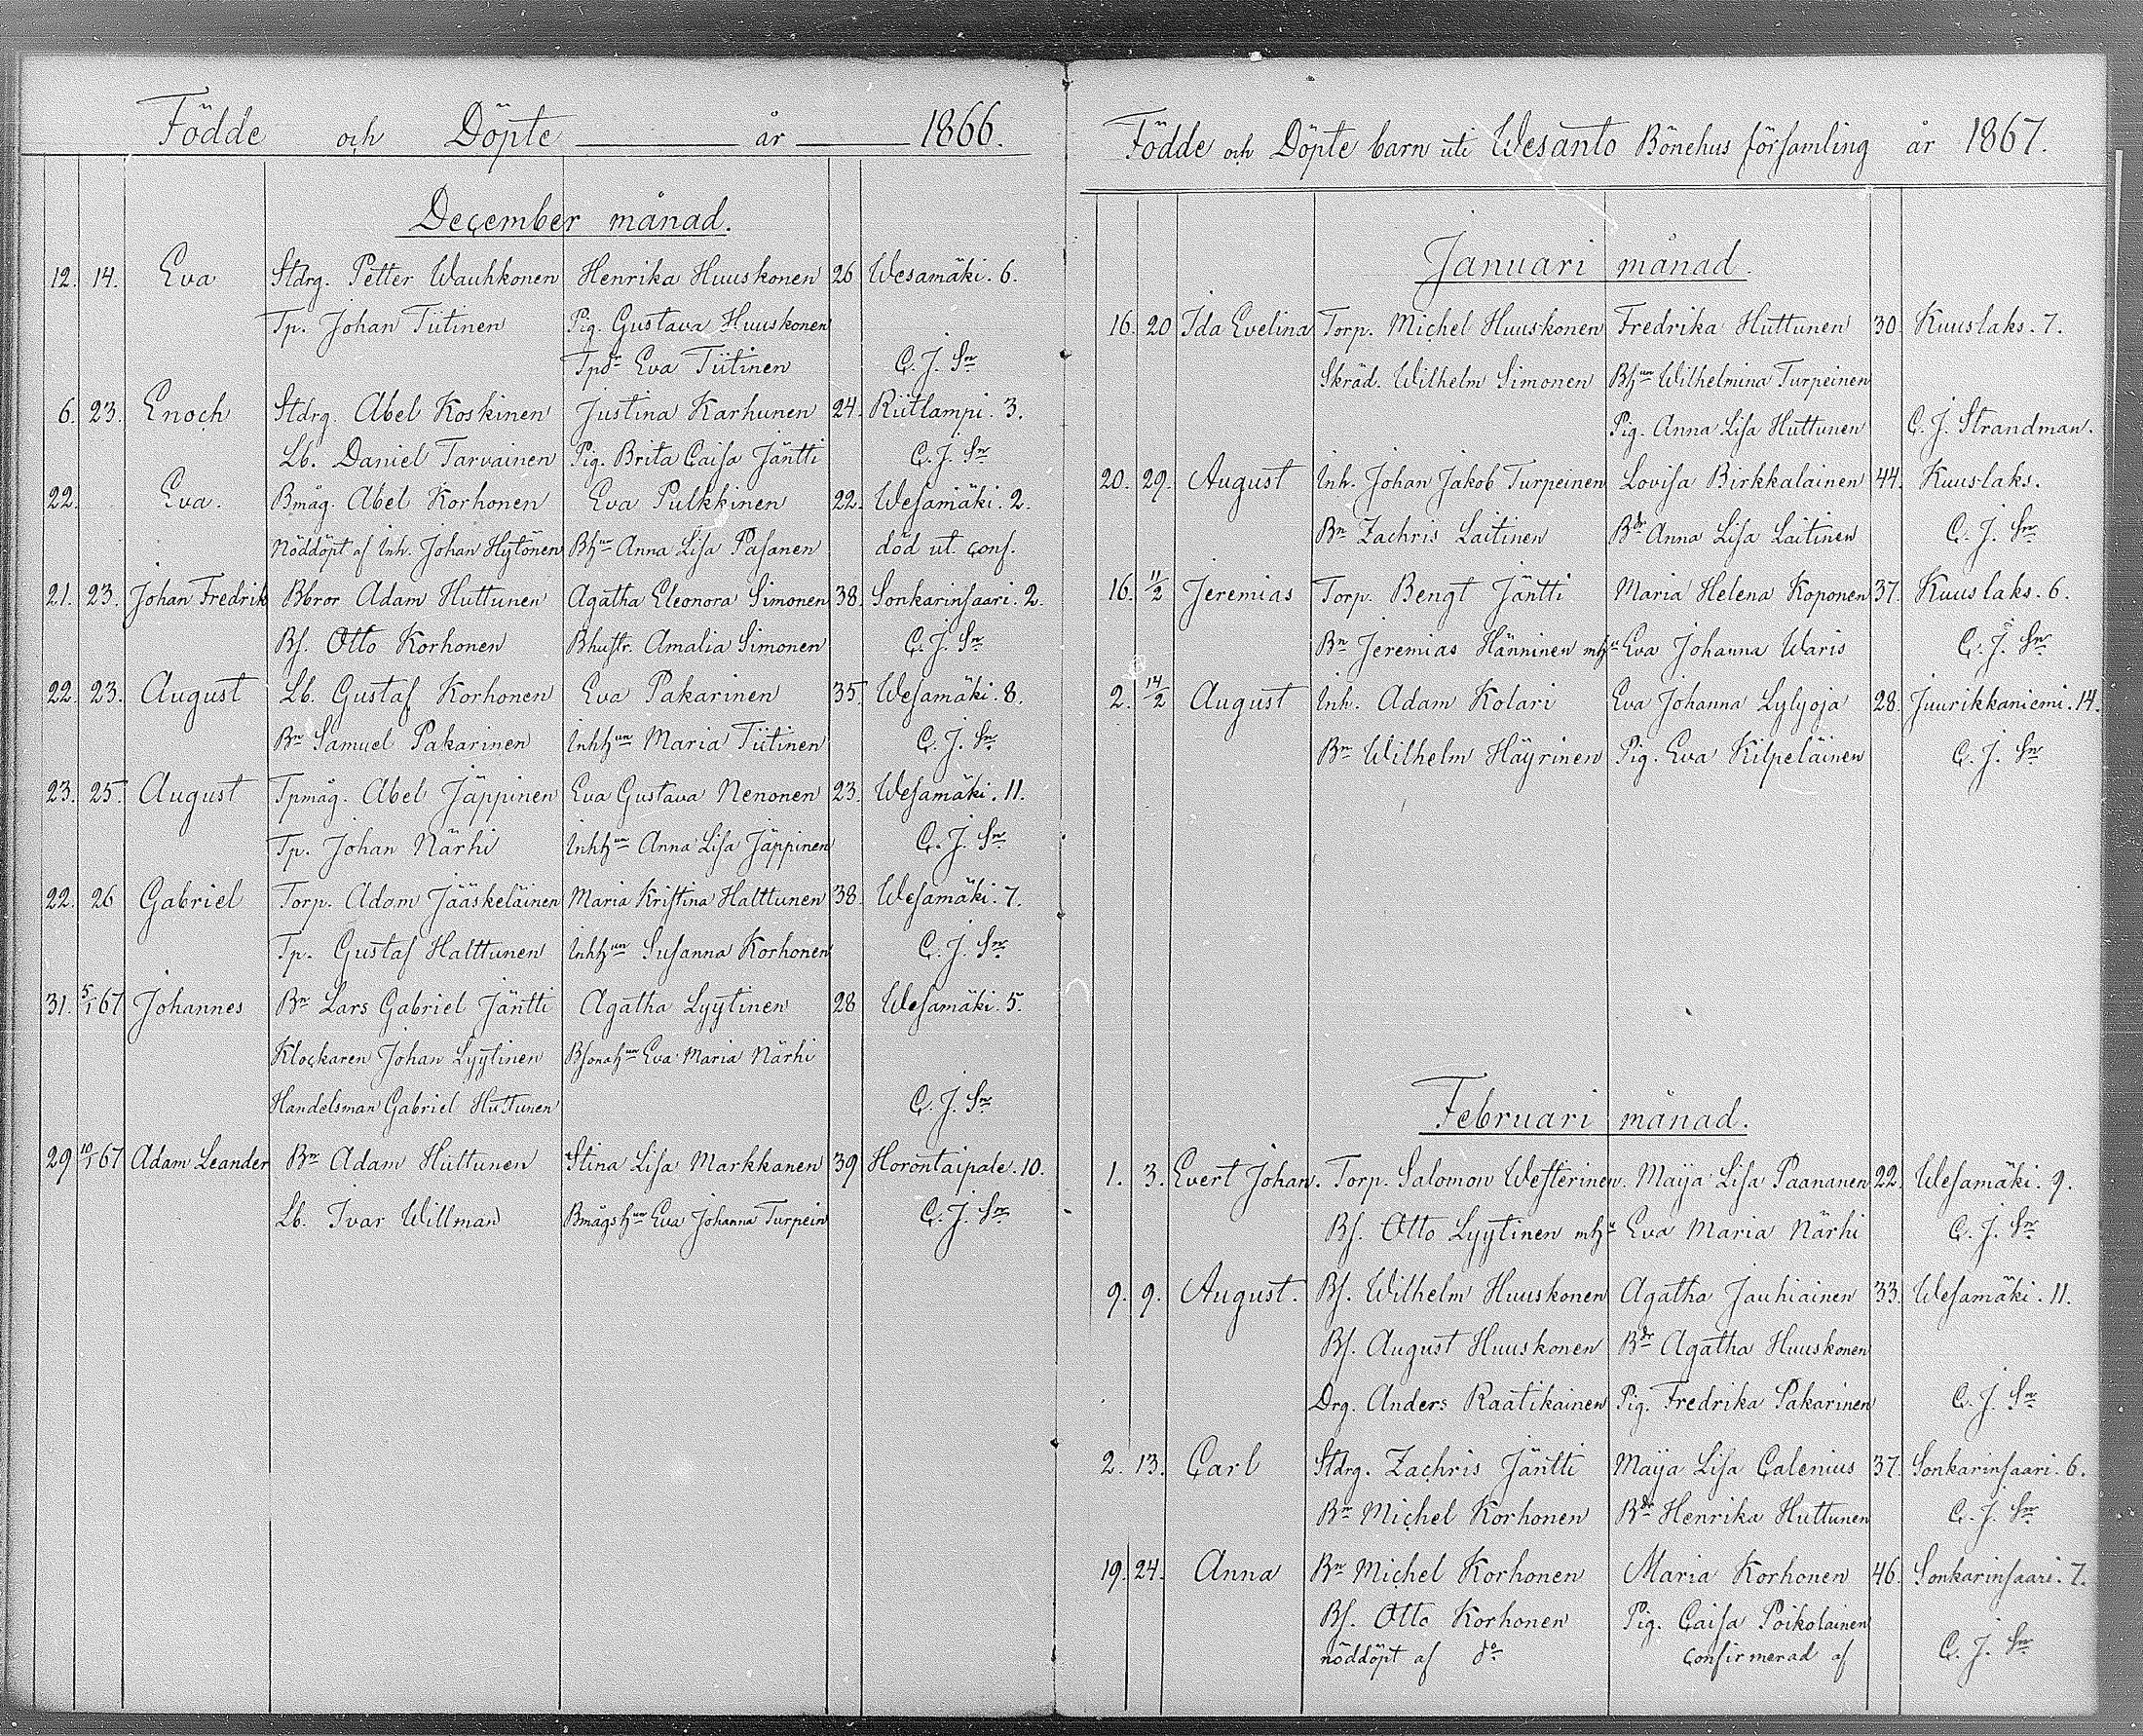 Födde och Döpte år 1866.
December månad.
12. 14. Eva Stdrg. Petter Wauhkonen Henrika Huuskonen 26 Wesamäki. 6.
Tp. Johan Tiitinen Pig. Gustava Huuskonen
Tpdr Eva Tiitinen C. J. Sn
6. 23. Enoch Stdrg. Abel Koskinen Justina Karhunen 24. Riitlampi. 3.
Lb. Daniel Tarvainen Pig. Brita Caisa Jäntti C. J. Sn
22. Eva. Bmåg. Abel Korhonen Eva Pulkkinen 22. Wesamäki. 2.
Nöddöpt af Inh. Johan Hytönen Bhun Anna Lisa Pasanen död ut. conf.
21. 23. Johan Fredrik Bbror Adam Huttunen Agatha Eleonora Simonen 38. Sonkarinsaari. 2.
Bs. Otto Korhonen Bhustr. Amalia Simonen C. J. Sn
22. 23. August Lb. Gustaf Korhonen Eva Pakarinen 35. Wesamäki. 8.
Bn Samuel Pakarinen Inhhun Maria Tiitinen C. J. Sn
23. 25. August Tpmåg. Abel Jäppinen Eva Gustava Nenonen 23. Wesamäki. 11.
Tp. Johan Närhi Inhhun Anna Lisa Jäppinen C. J. Sn
22. 26 Gabriel Torp. Adam Jääskeläinen Maria Kristina Halttunen 38. Wesamäki. 7.
Tp. Gustaf Halttunen Inhhun Susanna Korhonen C. J. Sn
31. 5/1 67 Johannes Bn Lars Gabriel Jäntti Agatha Lyytinen 28 Wesamäki. 5.
Klockaren Johan Lyytinen Bsonahun Eva Maria Närhi
Handelsman Gabriel Huttunen C. J. Sn
29 10/1 67 Adam Leander Bn Adam Huttunen Stina Lisa Markkanen 39 Horontaipale. 10.
Lb. Ivar Willman Bmågshun Eva Johanna Turpein C. J. Sn
Födde och Döpte barn uti Wesanto Bönehus församling år 1867.
Januari månad.
16. 20 Ida Evelina Torp. Michel Huuskonen Fredrika Huttunen 30. Kuuslaks. 7.
Skräd. Wilhelm Simonen Bhun Wilhelmina Turpeinen
Pig. Anna Lisa Huttunen C. J. Strandman.
20. 29. August Inh. Johan Jakob Turpeinen Lovisa Birkkalainen 44. Kuuslaks.
Bn Zachris Laitinen Bdr Anna Lisa Laitinen C. J. Sn
16. 11/2 Jeremias Torp. Bengt Jäntti Maria Helena Koponen 37. Kuuslaks. 6.
Bn Jeremias Hänninen mhu Eva Johanna Waris C. J. Sn
2. 14/2 August Inh. Adam Kolari Eva Johanna Lylyoja 28. Juurikkaniemi. 14.
Bn Wilhelm Häyrinen Pig. Eva Kilpeläinen C. J. Sn
Februari månad.
1. 3. Evert Johan. Torp. Salomon Westerinen. Maija Lisa Paananen 22. Wesamäki. 9.
Bs. Otto Lyytinen mhu Eva Maria Närhi C. J. Sn
9. 9. August. Bs. Wilhelm Huuskonen Agatha Jauhiainen 33. Wesamäki. 11.
Bs. August Huuskonen Bdr Agatha Huuskonen
Drg. Anders Raatikainen Pig. Fredrika Pakarinen C. J. Sn
2. 13. Carl Stdrg. Zachris Jäntti Maija Lisa Calenius 37. Sonkarinsaari. 6.
Bn Michel Korhonen Bdr Henrika Huttunen C. J. Sn
19. 24. Anna Bn Michel Korhonen Maria Korhonen 46. Sonkarinsaari. 7.
Bs. Otto Korhonen Pig. Caisa Poikolainen
nöddöpt af do confirmerad af C. J. Sn